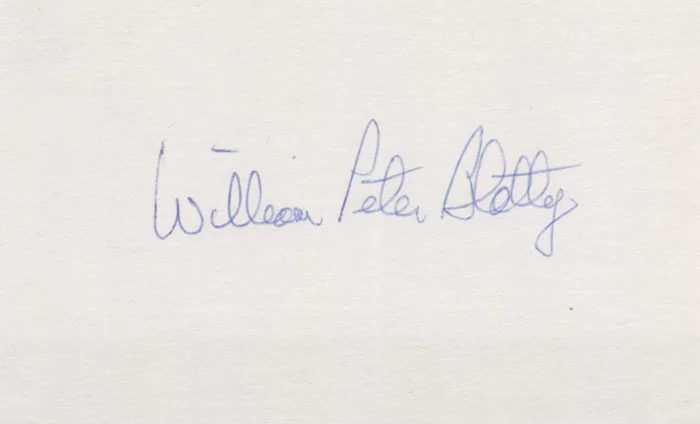 William Peter Blatty